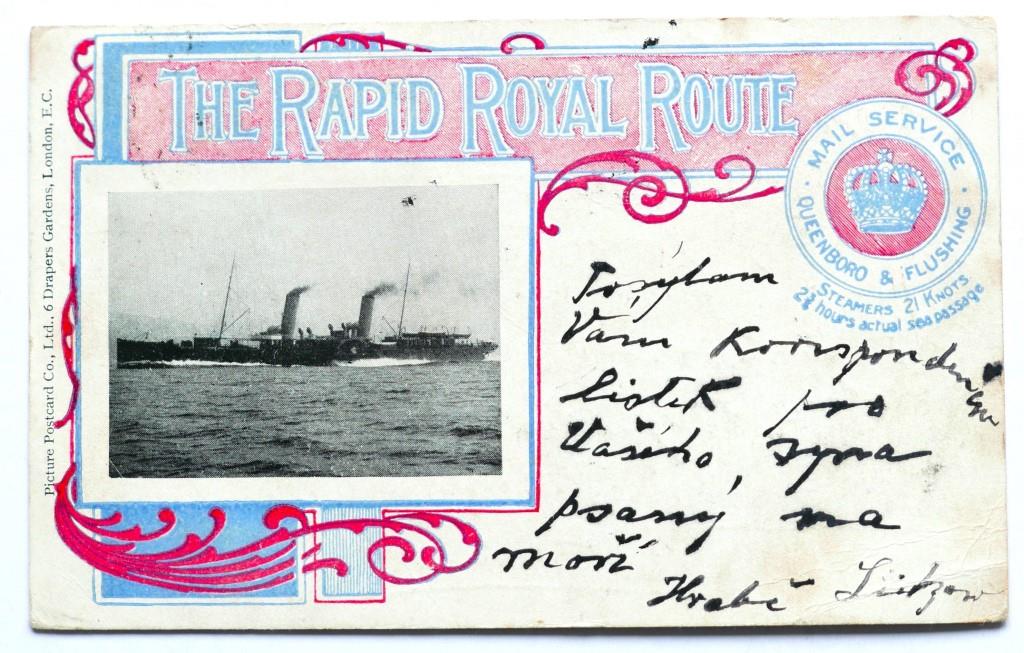 THE RAPID ROYAL ROUTE
MAIL SERVICE
QUEENBORO & FLUSHING
STEAMERS 21 KNOTS
2¾ hours actual sea passage
Picture Postcard Co., Ltd., 6 Drapers Gardens, London, E.C.
Posýlam
Vám
lístek pro
Vašeho syna
psaný na
moři
Hrabě Lützow